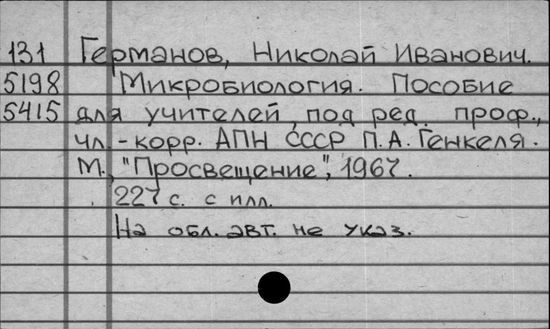 131 Германов, Николай Иванович.
5198 Микробиология. Пособие
5415 для учителей, под ред. проф.,
чл.-корр. АПН СССР П.А. Генкеля.
М., "Просвещение", 1967.
227 с. с илл.
На обл. авт. не указ.